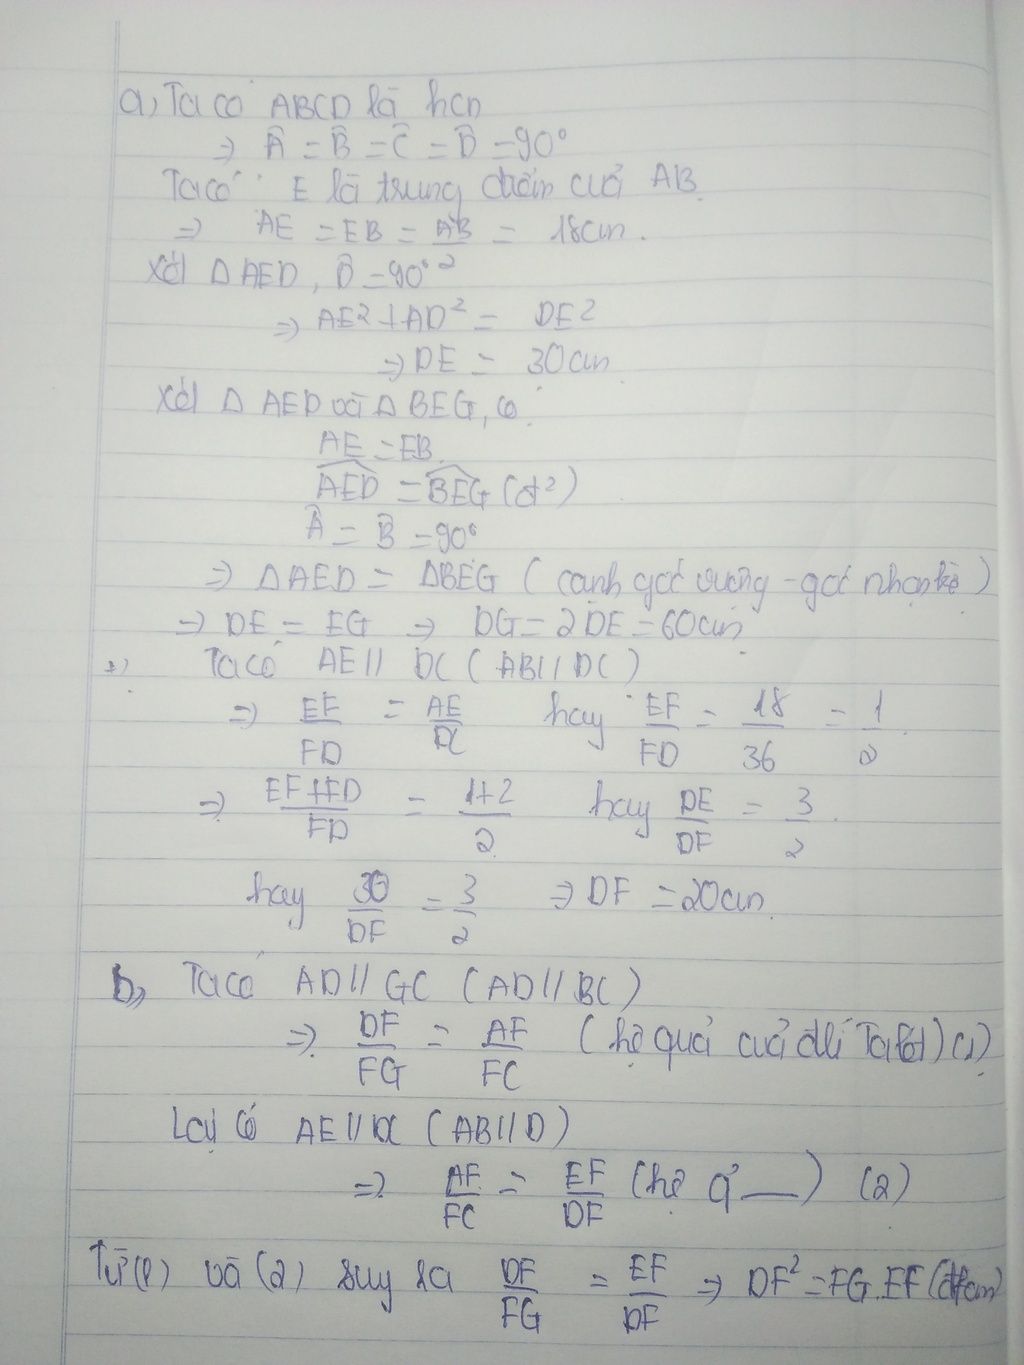 a, Ta có ABCD là hcn
⇒ Â = B̂ = Ĉ = D̂ = 90°
Ta có E là trung điểm của AB
⇒ AE = EB = AB/2 = 18cm.
Xét ΔAED, D̂ = 90°
⇒ AE² + AD² = DE²
⇒ DE = 30cm
Xét Δ AED và Δ BEG, có
AE = EB
AED = BEG (đ²)
Â = B̂ = 90°
⇒ ΔAED = ΔBEG (cạnh góc vuông - góc nhọn kề)
⇒ DE = EG ⇒ DG = 2DE = 60cm
Ta có AE // DC (AB // DC)
⇒ EF/FD = AE/DC hay EF/FD = 18/36 = 1/2
⇒ EF+FD/FD = 1+2/2 hay DE/DF = 3/2.
hay 30/DF = 3/2 ⇒ DF = 20cm
b, Ta có AD // GC (AD // BC)
⇒ DF/FG = AF/FC (hệ quả của đlí Talét) (1)
Lại có AE // DC (AB // D)
⇒ AF/FC = EF/DF (hệ q̉ —) (2)
Từ (1) và (2) suy ra DF/FG = EF/DF ⇒ DF² = FG.EF (đpcm)